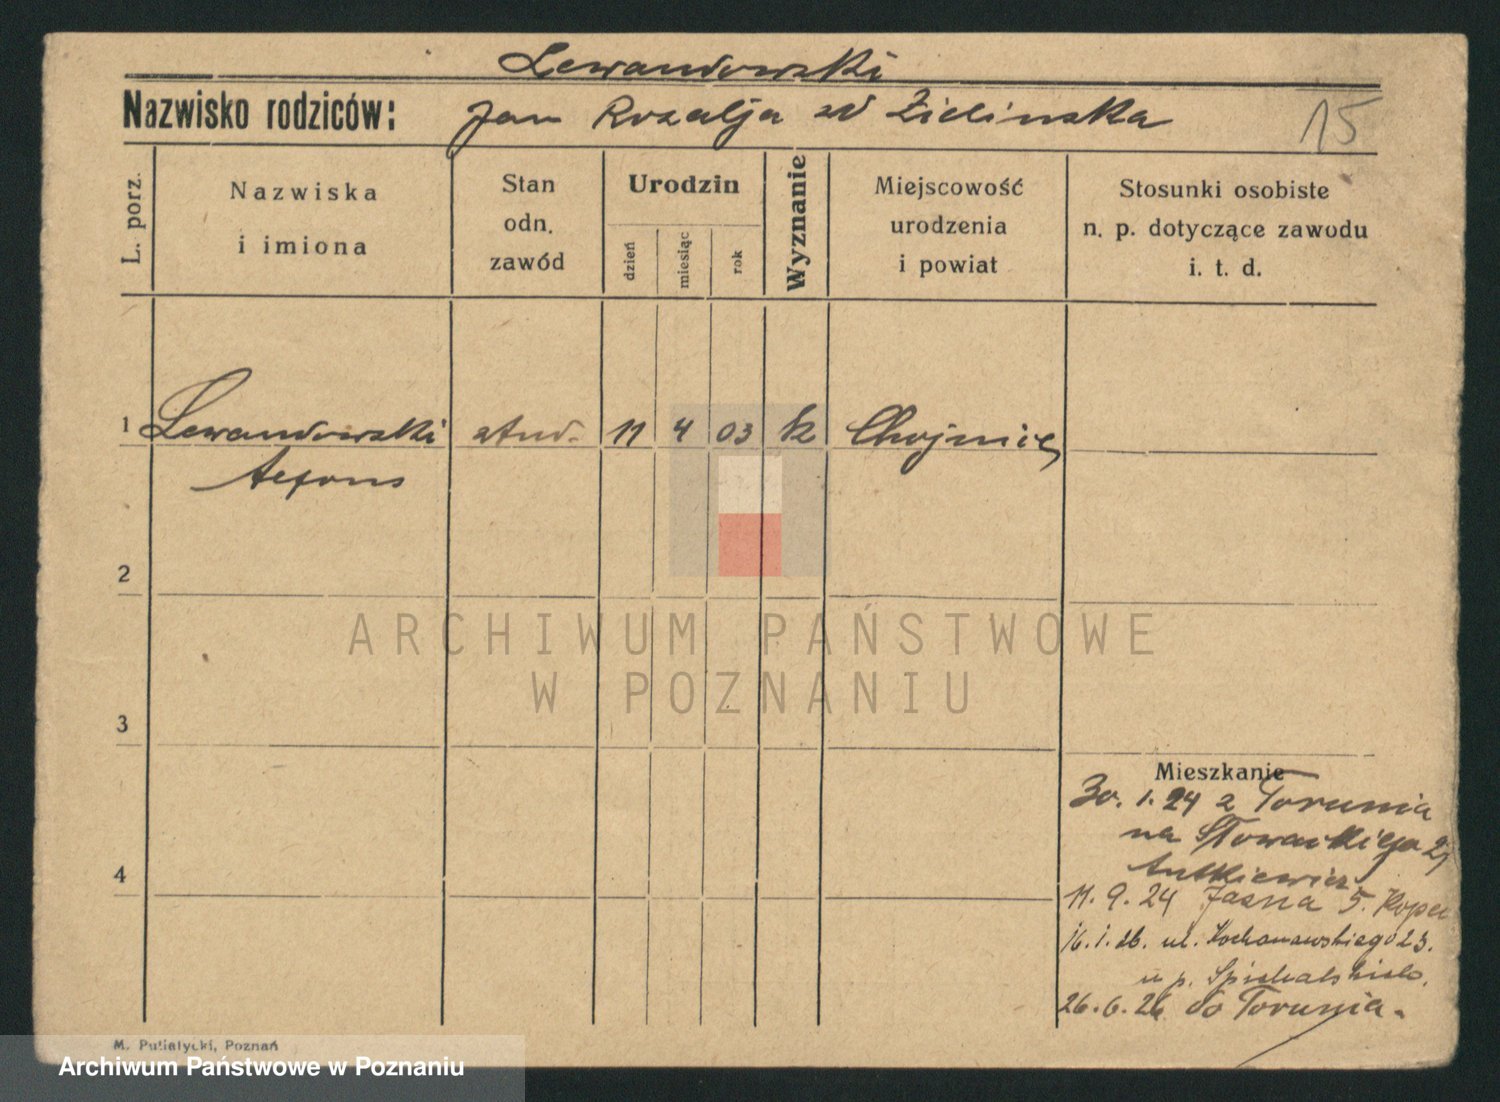 Lewandowski
Nazwisko rodziców: Jan Rozalja zd Zielinska
15
L. porz.
Nazwiska
i imiona
Stan
odn.
zawód
Urodzin
dzień
miesiąc
rok
Wyznanie
Miejscowość
urodzenia
i powiat
Stosunki osobiste
n. p. dotyczące zawodu
i. t. d.
1 Lewandowski stud. 11 4 03 k Chojnice
Alfons
2
ARCHIWUM PAŃSTWOWE
W POZNANIU
3
4
Mieszkanie
30. 1. 24 z Torunia
na Słowackiego
Antkiewicz
11. 9. 24 Jasna 5.
16. 1. 26. ul. Kochanowskiego 23.
u p.
26. 6. 26 do Torunia.
M. Putiatycki, Poznań
Archiwum Państwowe w Poznaniu